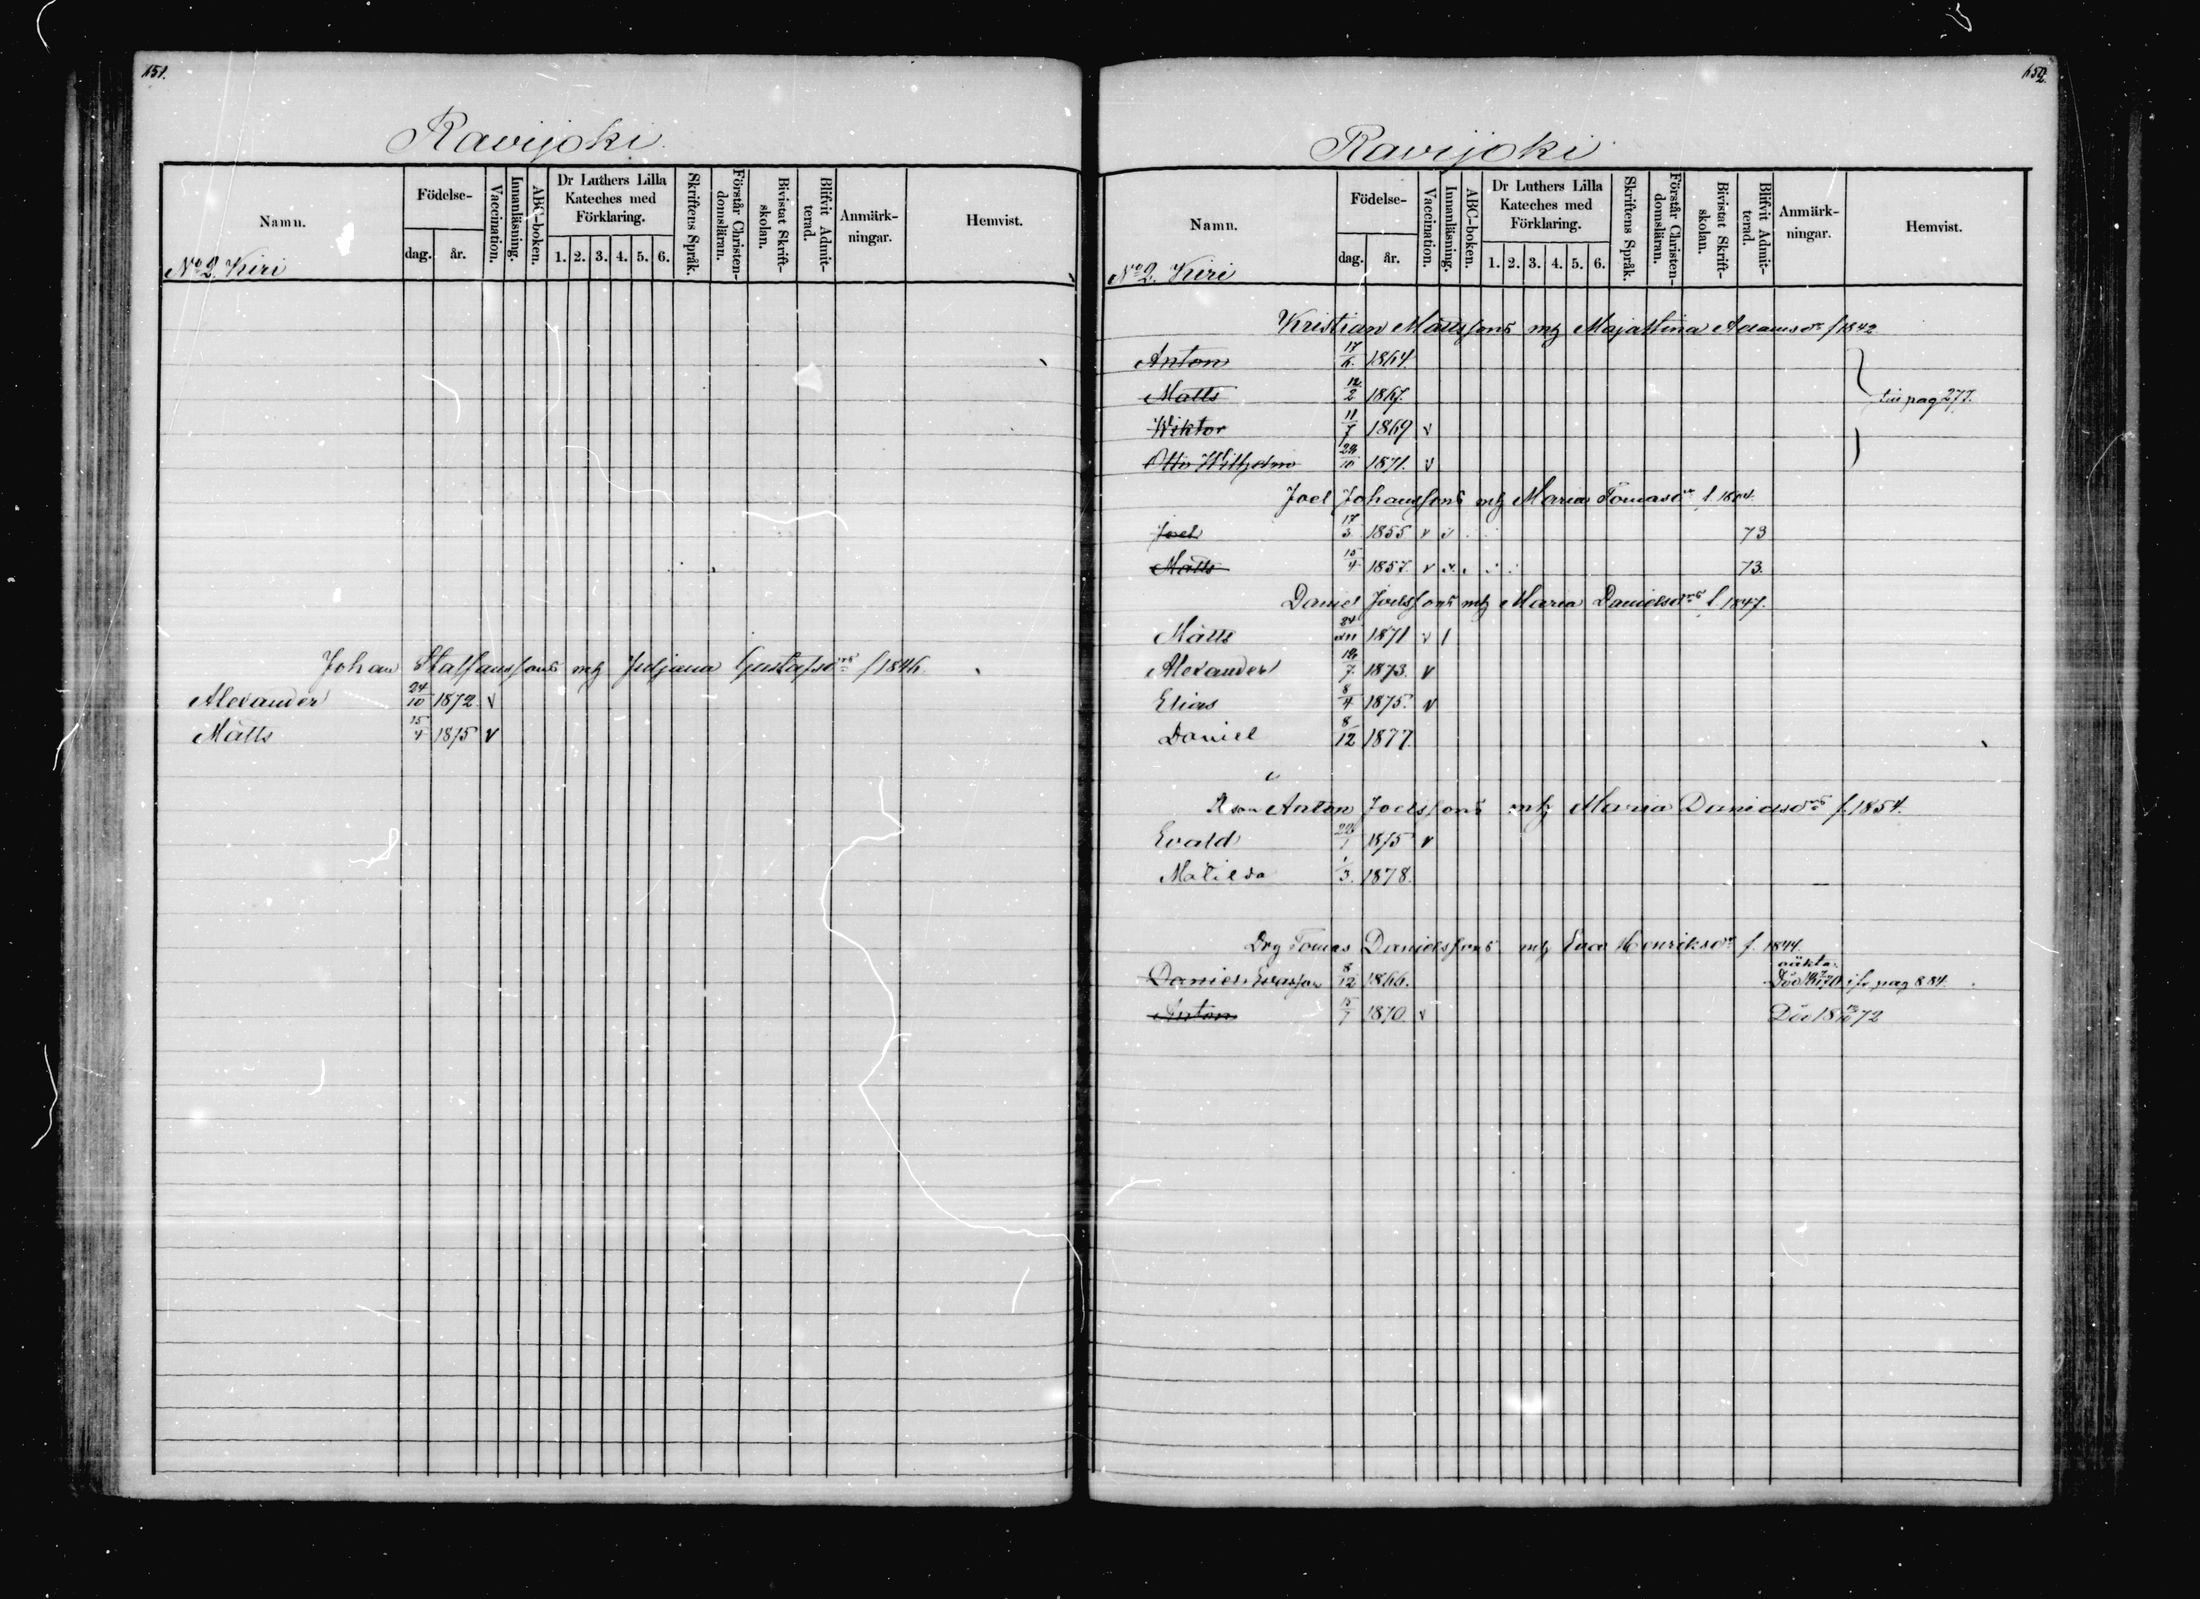 151.
Ravijoki.
Namn. Födelse- dag. år. Vaccination. Innanläsning. ABC-boken. Dr Luthers Lilla Kateches med Förklaring. 1. 2. 3. 4. 5. 6. Skriftens Språk. Förstår Christen-domsläran. Bivistat Skrift-skolan. Blifvit Admit-terad. Anmärk-ningar. Hemvist.
No 2. Kiri
Johan Staffanssons mtz Juljana Gustafsdrs f 1846.
Alexander 24/10 1872. v
Matts 15/4 1875 v
152.
Ravijoki
Namn. Födelse- dag. år. Vaccination. Innanläsning. ABC-boken. Dr Luthers Lilla Kateches med Förklaring. 1. 2. 3. 4. 5. 6. Skriftens Språk. Förstår Christen-domsläran. Bivistat Skrift-skolan. Blifvit Admit-terad. Anmärk-ningar. Hemvist.
No 2. Kiri
Kristian Mattssons mtz Majastina Adamsdr f 1842
Anton 17/6. 1864.
Matts 12/2 1867. pag 277.
Wiktor 11/7 1869 v
Otto Wilhelm 10 1871. v
Joel Johanssons mtz Maria Tomasdr f. 1804.
Joel 17/3 1855 v v 73
Matts 15/4 1857. v v 73.
Daniel Joelssons mtz Maria Danielsdrs f. 1847.
Matts 1871 v 1
Alexander 7. 1873. v
Elias 8/4 1875. v
Daniel 8/12 1877.
Rson Anton Joelssons mtz Maria Danielsdrs f. 1854.
Evald 1 1875 v
Matilda 1/3. 1878.
Drg Tomas Danielssons mtz Eva Henriksdr f. 1844.
oäkta.
Daniel Evasson 8/12 1866. Död pag 884.
Anton 15/7 1870. v Död 18 72